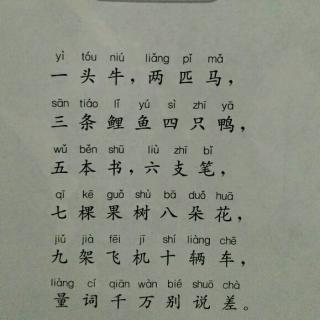 yì tóu niú liǎng pǐ mǎ
一头牛，两匹马，
sān tiáo lǐ yú sì zhī yā
三条鲤鱼四只鸭，
wǔ běn shū liù zhī bǐ
五本书，六支笔，
qī kē guǒ shù bā duǒ huā
七棵果树八朵花，
jiǔ jià fēi jī shí liàng chē
九架飞机十辆车，
liàng cí qiān wàn bié shuō chà
量词千万别说差。